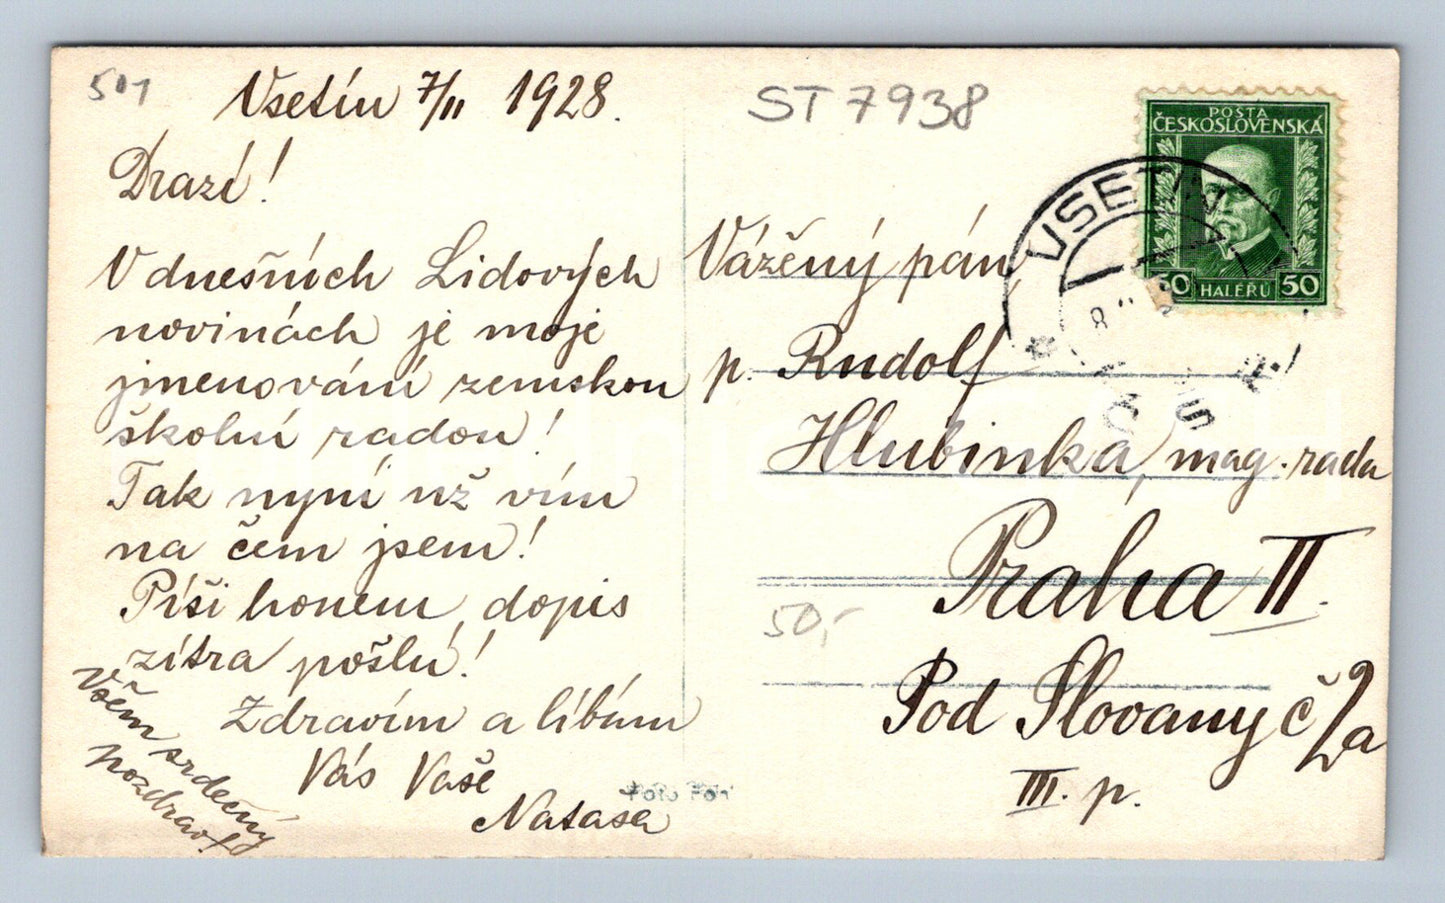 501
Vsetín 7/II 1928.
ST 7938
Drazí!
V dnešních Lidových
novinách je moje
jmenování zemskou
školní radou!
Tak nyní už vím
na čem jsem!
Píši honem, dopis
zítra pošlu!
Zdravím a líbám
Vás Vaše
Nataša
Všem srdečný
pozdrav!
POŠTA
ČESKOSLOVENSKÁ
50 HALÉŘŮ 50
VSETÍN
8
Vážený pán
p. Rudolf
Hlubinka, mag. rada
Praha II.
50,-
Pod Slovany č 2a
III. p.